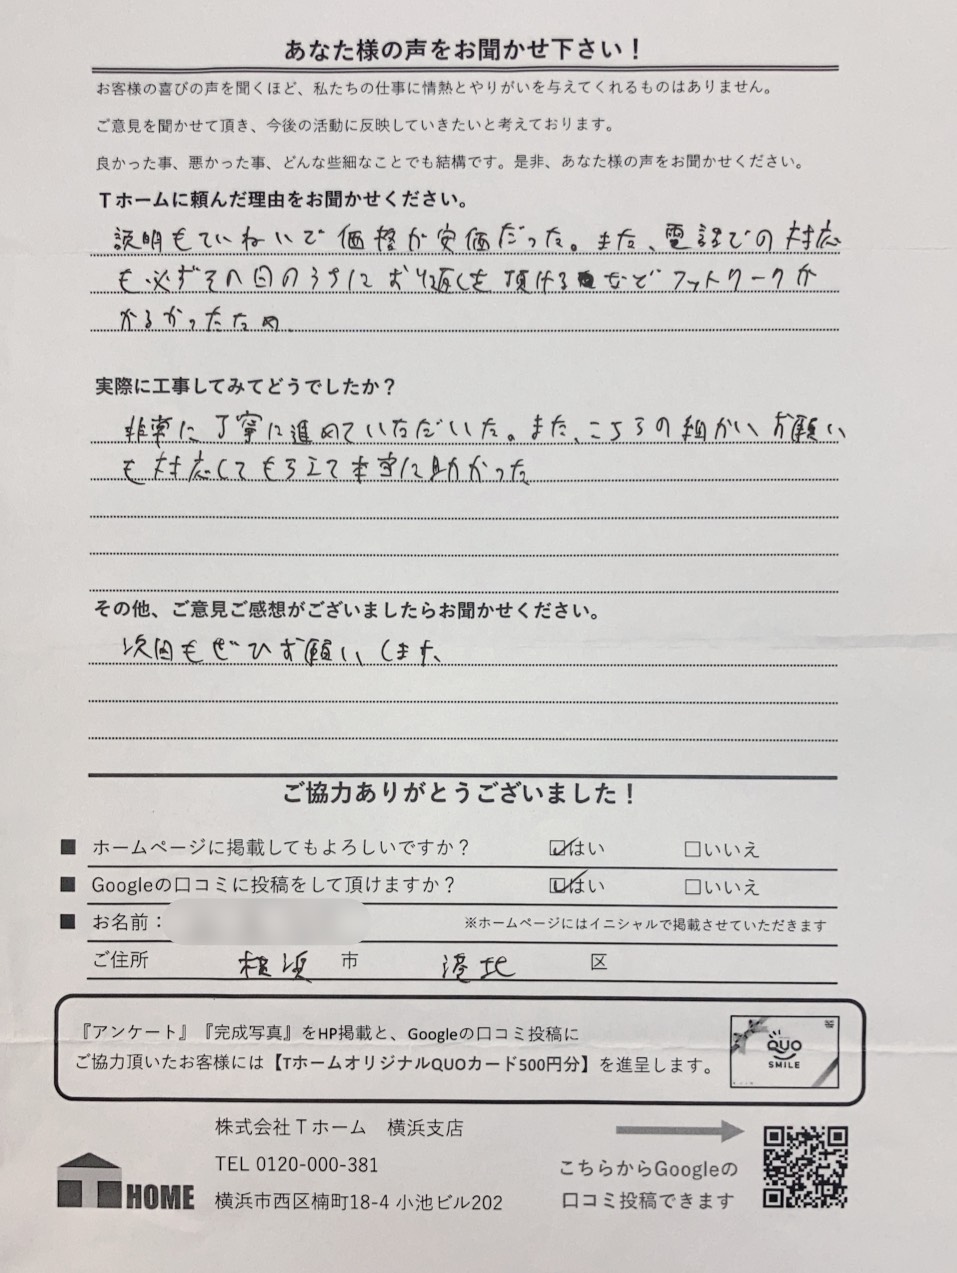 あなた様の声をお聞かせ下さい！
お客様の喜びの声を聞くほど、私たちの仕事に情熱とやりがいを与えてくれるものはありません。
ご意見を聞かせて頂き、今後の活動に反映していきたいと考えております。
良かった事、悪かった事、どんな些細なことでも結構です。是非、あなた様の声をお聞かせください。
Tホームに頼んだ理由をお聞かせください。
説明もていねいで価格が安価だった。また、電話での対応
も必ずその日のうちにお返しを頂けるなどフットワークが
かるかったため
実際に工事してみてどうでしたか？
非常に丁寧に進めていただいた。また、こちらの細かいお願い
も対応してもらえて本当に助かった
その他、ご意見ご感想がございましたらお聞かせください。
次回もぜひお願いします、
ご協力ありがとうございました！
■ ホームページに掲載してもよろしいですか？ ☑はい □いいえ
■ Googleの口コミに投稿をして頂けますか？ ☑はい □いいえ
■ お名前： ※ホームページにはイニシャルで掲載させていただきます
ご住所 横浜 市 港北 区
『アンケート』『完成写真』をHP掲載と、Googleの口コミ投稿に
ご協力頂いたお客様には【TホームオリジナルQUOカード500円分】を進呈します。
QUO
SMILE
株式会社Tホーム 横浜支店
TEL 0120-000-381
横浜市西区楠町18-4 小池ビル202
T HOME
こちらからGoogleの
口コミ投稿できます